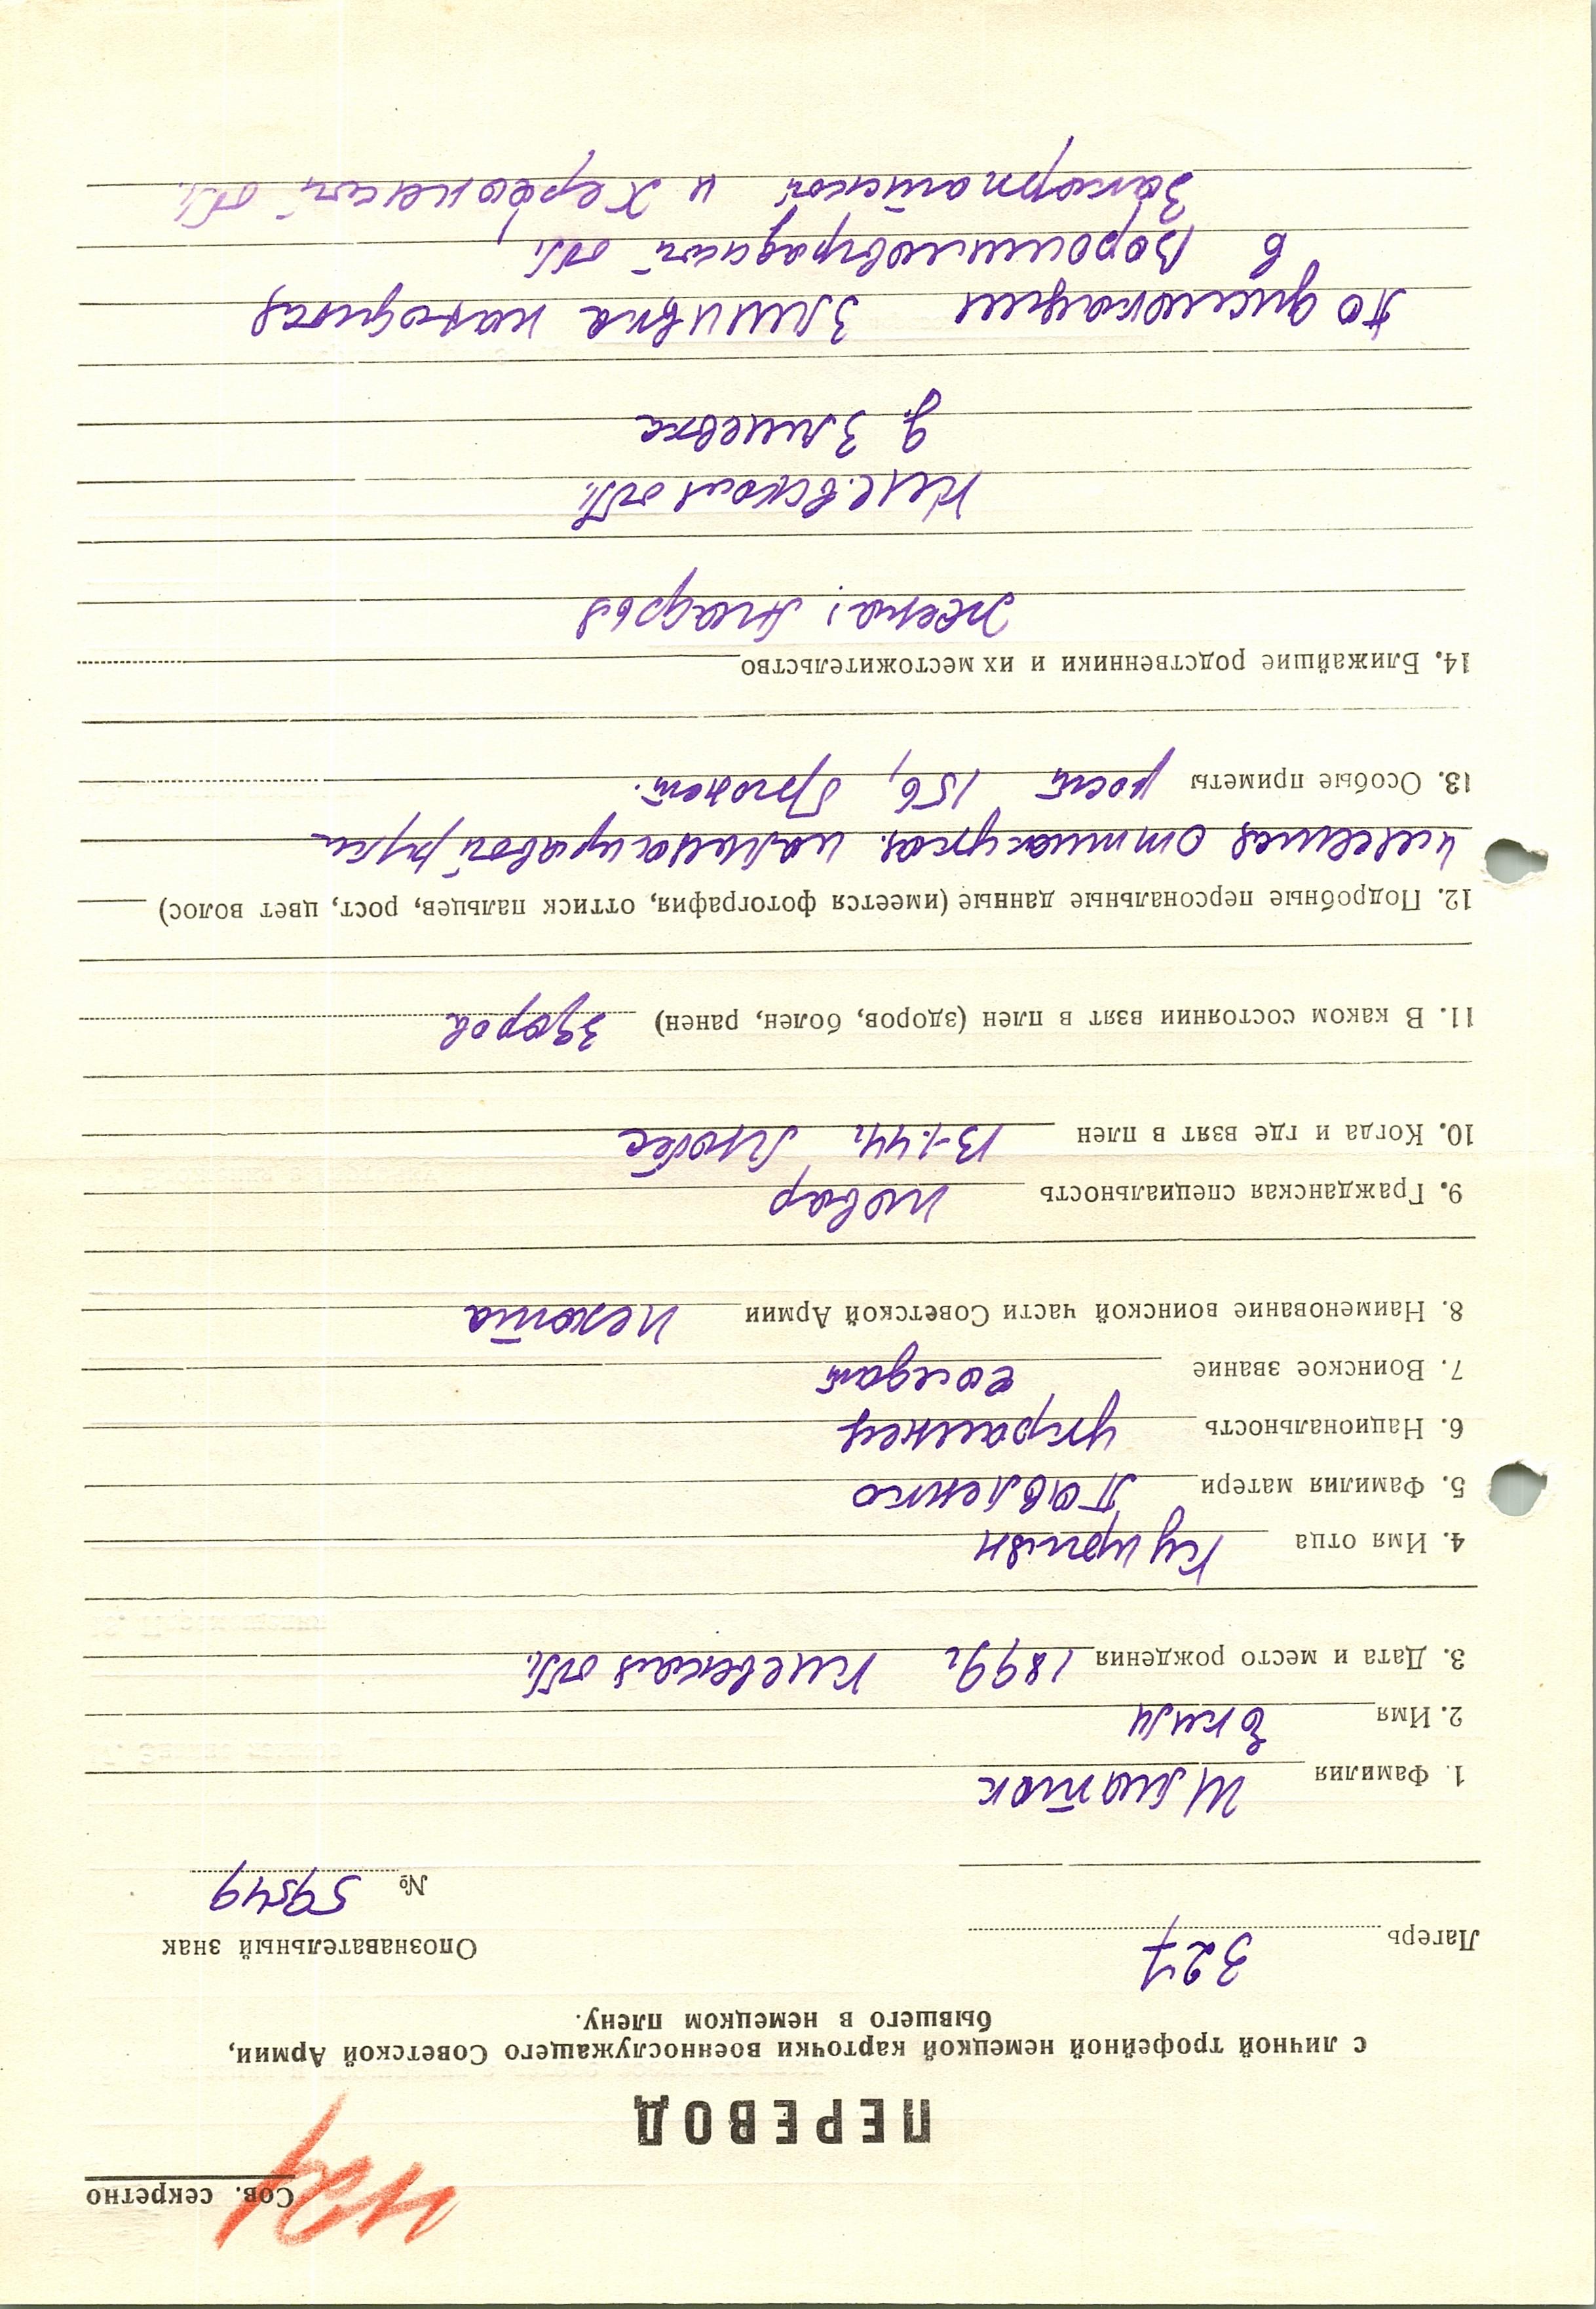 Сов. секретно
ПЕРЕВОД
с личной трофейной немецкой карточки военнослужащего Советской Армии,
бывшего в немецком плену.
Лагерь 327 Опознавательный знак
№ 59549
1. Фамилия Шматок
2. Имя Еким
3. Дата и место рождения 1899г. Киевская обл.
4. Имя отца Куприян
5. Фамилия матери Павленко
6. Национальность украинец
7. Воинское звание солдат
8. Наименование воинской части Советской Армии пехота
9. Гражданская специальность повар
10. Когда и где взят в плен 13-1.44г.
11. В каком состоянии взят в плен (здоров, болен, ранен) здоров
12. Подробные персональные данные (имеется фотография, оттиск пальцев, рост, цвет волос)
имеется оттиск указ. пальца правой руки
13. Особые приметы рост 156, брюнет.
14. Ближайшие родственники и их местожительство
жена:
Киевская обл.
д. Змиевка
По дислокации Змиивка находится
в Ворошиловградской обл.,
Закарпатской и Херсонской обл.